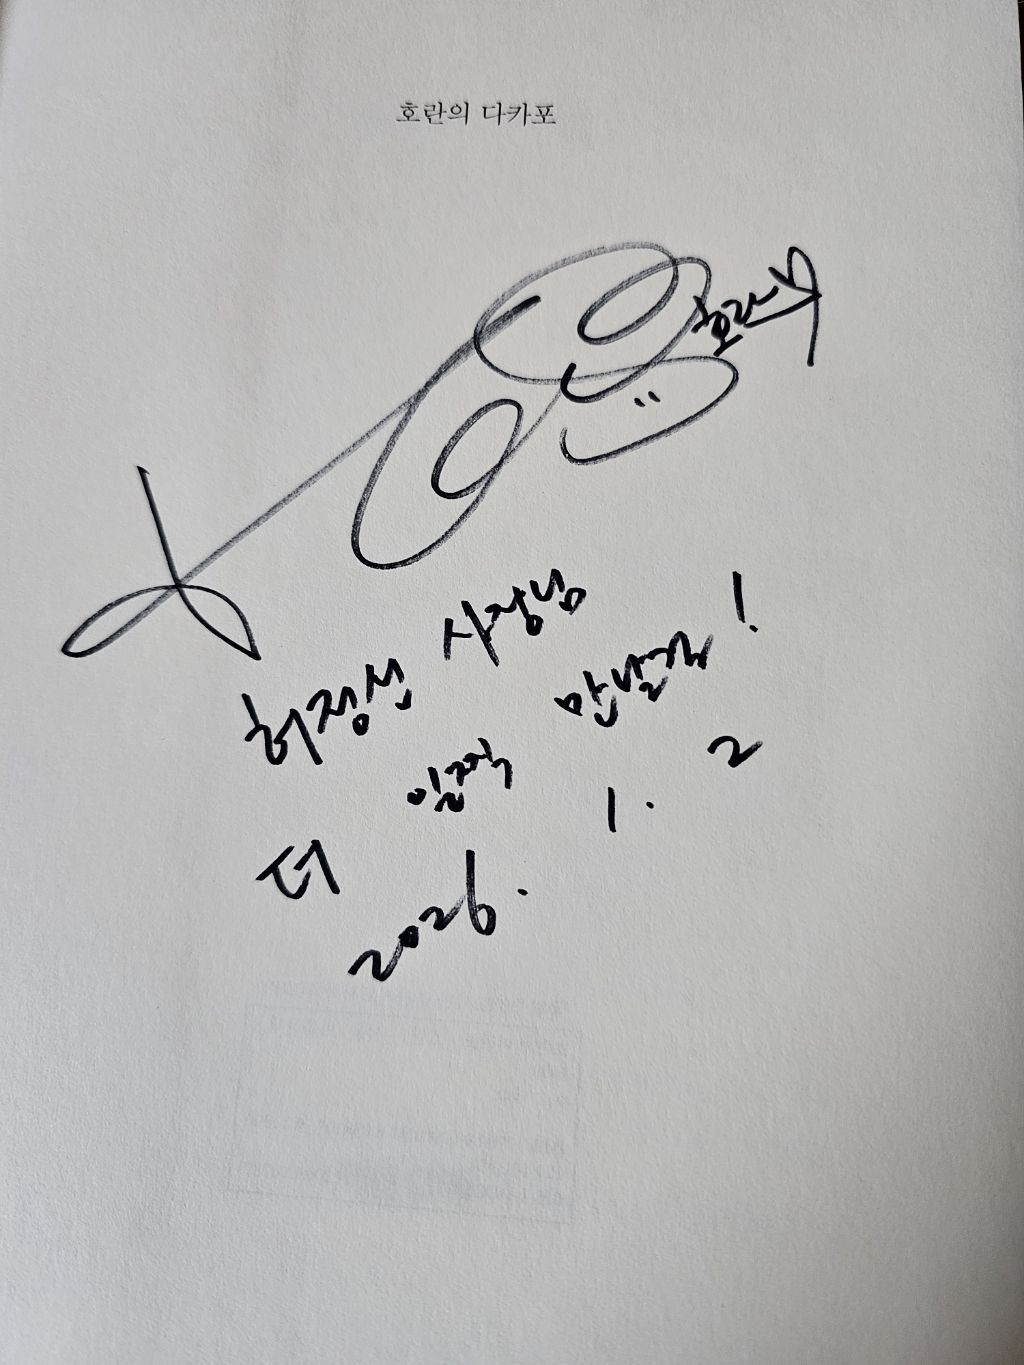 호란의 다카포
호란
허정선 사장님
더 일찍 만날걸!
2026. 1. 2